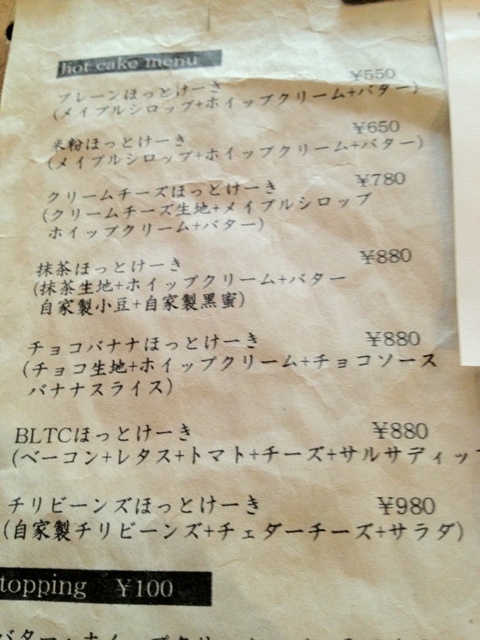 hot cake menu
プレーンほっとけーき ¥550
(メイプルシロップ+ホイップクリーム+バター)
米粉ほっとけーき ¥650
(メイプルシロップ+ホイップクリーム+バター)
クリームチーズほっとけーき ¥780
(クリームチーズ生地+メイプルシロップ
ホイップクリーム+バター)
抹茶ほっとけーき ¥880
(抹茶生地+ホイップクリーム+バター
自家製小豆+自家製黒蜜)
チョコバナナほっとけーき ¥880
(チョコ生地+ホイップクリーム+チョコソース
バナナスライス)
BLTCほっとけーき ¥880
(ベーコン+レタス+トマト+チーズ+サルサディッ
チリビーンズほっとけーき ¥980
(自家製チリビーンズ+チェダーチーズ+サラダ)
topping ¥100